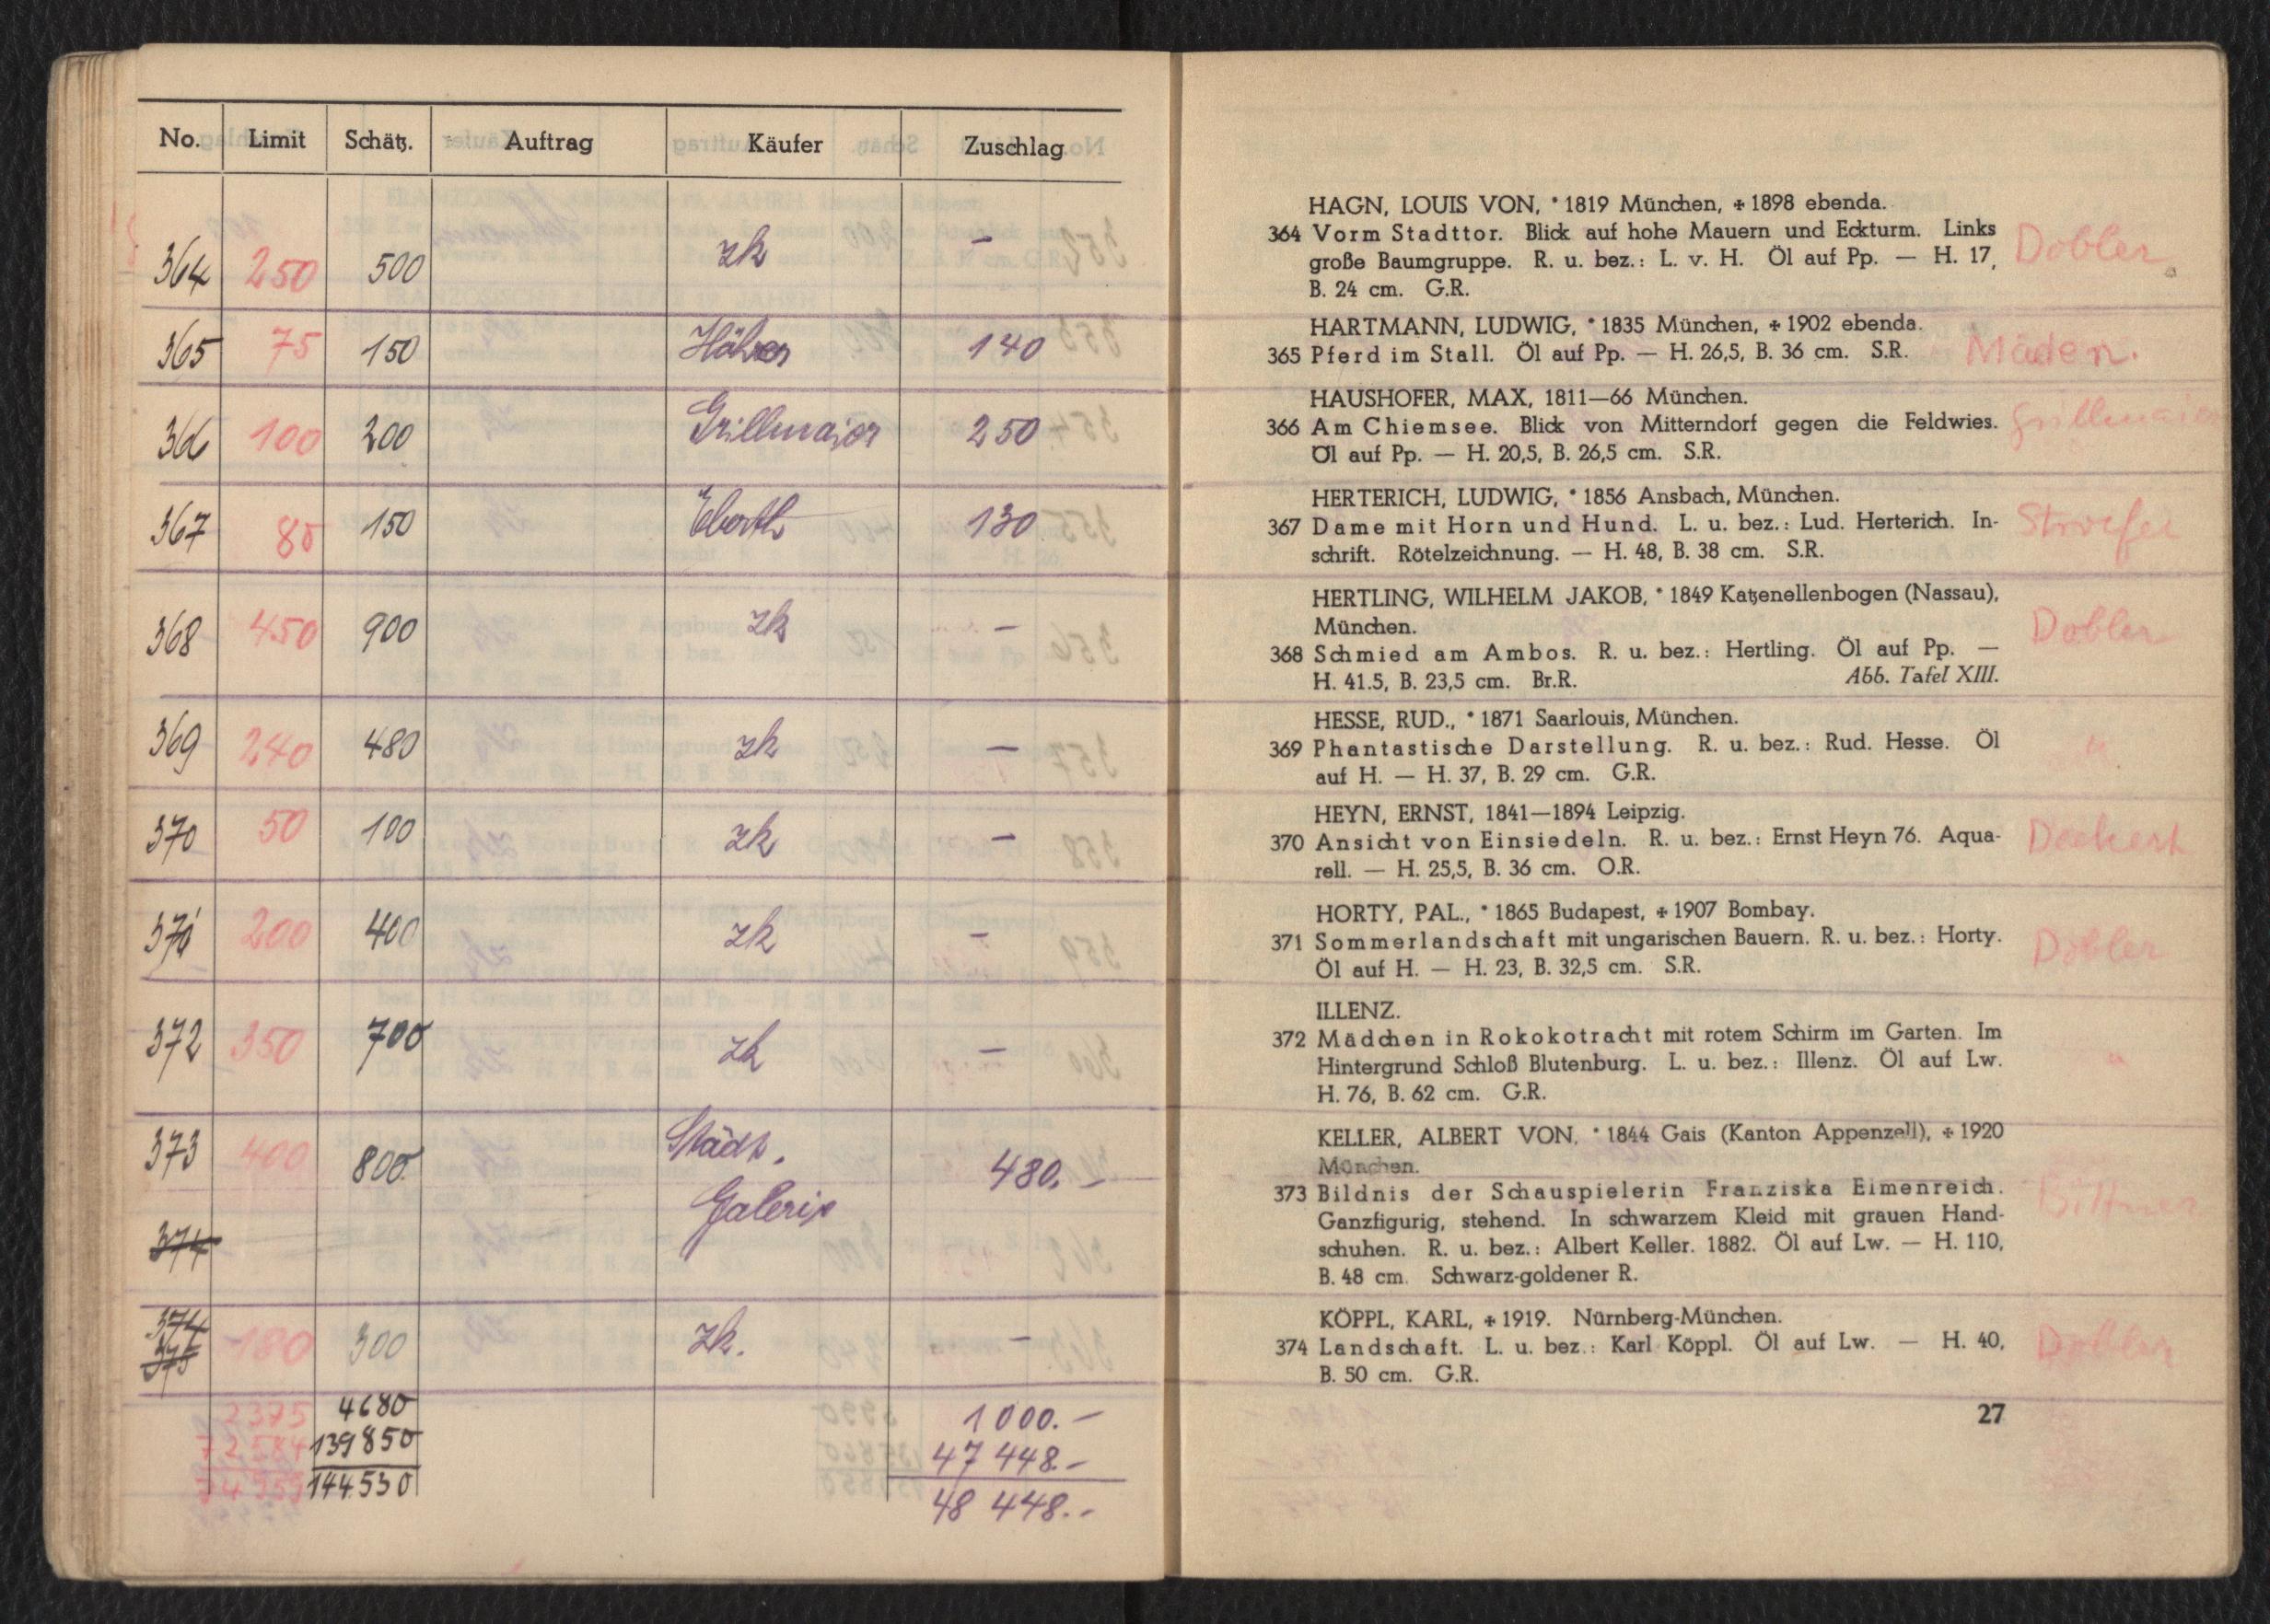 No. Limit Schätz. Auftrag Käufer Zuschlag
364 250 500 zk —
365 75 150 Höhrer 140
366 100 200 Grillmaier 250
367 85 150 Eberth 130
368 450 900 zk —
369 240 480 zk —
370 50 100 zk —
371 200 400 zk —
372 350 700 zk —
373 400 800 Städt. 480.—
Galerie
374
374
375 180 300 zk. —
2375 4680 1000.—
72584 139850 47448.—
144530 48448.—
HAGN, LOUIS VON, * 1819 München, ✠ 1898 ebenda.
364 Vorm Stadttor. Blick auf hohe Mauern und Eckturm. Links Dobler
große Baumgruppe. R. u. bez.: L. v. H. Öl auf Pp. — H. 17,
B. 24 cm. G.R.
HARTMANN, LUDWIG, * 1835 München, ✠ 1902 ebenda.
365 Pferd im Stall. Öl auf Pp. — H. 26,5, B. 36 cm. S.R. Mäder.
HAUSHOFER, MAX, 1811—66 München.
366 Am Chiemsee. Blick von Mitterndorf gegen die Feldwies. Grillmaier
Öl auf Pp. — H. 20,5, B. 26,5 cm. S.R.
HERTERICH, LUDWIG, * 1856 Ansbach, München.
367 Dame mit Horn und Hund. L. u. bez.: Lud. Herterich. In-
schrift. Rötelzeichnung. — H. 48, B. 38 cm. S.R.
HERTLING, WILHELM JAKOB, * 1849 Katzenellenbogen (Nassau),
München. Dobler
368 Schmied am Ambos. R. u. bez.: Hertling. Öl auf Pp. —
H. 41.5, B. 23,5 cm. Br.R. Abb. Tafel XIII.
HESSE, RUD., * 1871 Saarlouis, München.
369 Phantastische Darstellung. R. u. bez.: Rud. Hesse. Öl "
auf H. — H. 37, B. 29 cm. G.R.
HEYN, ERNST, 1841—1894 Leipzig.
370 Ansicht von Einsiedeln. R. u. bez.: Ernst Heyn 76. Aqua- Deckert
rell. — H. 25,5, B. 36 cm. O.R.
HORTY, PAL., * 1865 Budapest, ✠ 1907 Bombay.
371 Sommerlandschaft mit ungarischen Bauern. R. u. bez.: Horty. Dobler
Öl auf H. — H. 23, B. 32,5 cm. S.R.
ILLENZ.
372 Mädchen in Rokokotracht mit rotem Schirm im Garten. Im
Hintergrund Schloß Blutenburg. L. u. bez.: Illenz. Öl auf Lw. "
H. 76, B. 62 cm. G.R.
KELLER, ALBERT VON, * 1844 Gais (Kanton Appenzell), ✠ 1920
München.
373 Bildnis der Schauspielerin Franziska Elmenreich. Büttner
Ganzfigurig, stehend. In schwarzem Kleid mit grauen Hand-
schuhen. R. u. bez.: Albert Keller. 1882. Öl auf Lw. — H. 110,
B. 48 cm. Schwarz-goldener R.
KÖPPL, KARL, ✠ 1919. Nürnberg-München.
374 Landschaft. L. u. bez.: Karl Köppl. Öl auf Lw. — H. 40, Dobler
B. 50 cm. G.R.
27